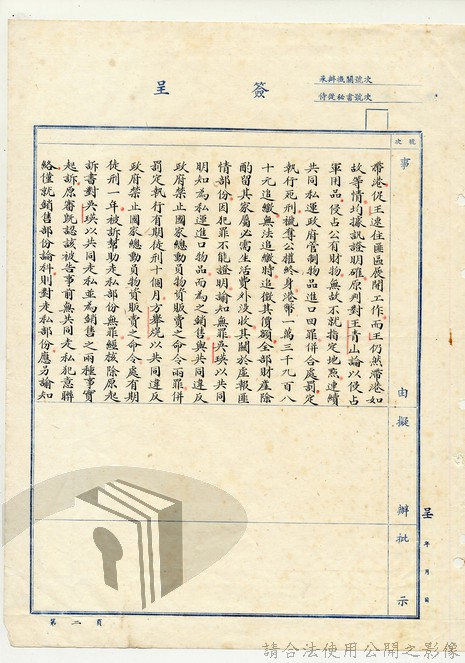 簽呈
承辦機關號次
侍從秘書號次
號次
事由擬辦批示
呈 年 月 日
帶港促王速往匪區展開工作而王仍然帶港如
故等情均據訊證明確原判對王青山論以侵占
軍用品侵占公有財物無故不就指定地點連續
共同私運政府管制物品進口四罪併合處罰定
執行死刑褫奪公權終身港幣一萬三千九百八
十元追繳無法追繳時追徵其價額全部財產除
酌留其家屬必需生活費外沒收其關於虛報匪
情部份因犯罪不能證明諭知無罪吳瑛以共同
明知為私運進口物品而為之銷售與共同違反
政府禁止國家總動員物資販賣之命令兩罪併
罰定執行有期徒刑十個月方擧焜以共同違反
政府禁止國家總動員物資販賣之命令處有期
徒刑一年被訴幫助走私部份無罪經核除原起
訴書對吳瑛以共同走私並為銷售之兩種事實
起訴原審既認該被告事前無共同走私犯意聯
絡僅就銷售部份論科則對走私部份應另諭知
第二頁
請合法使用公開之影像